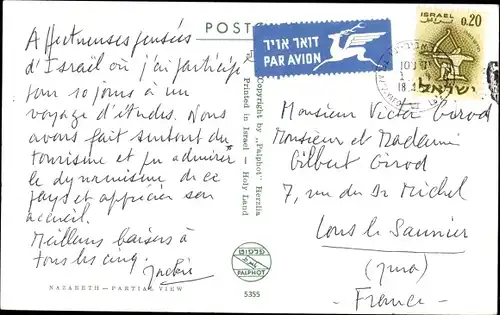 POSTC
Affectueuses pensées
d'Israël où j'ai participé
pour 10 jours à un
voyage d'études. Nous
avons fait surtout du
tourisme et pu admirer
le dynamisme de ce
pays et apprécier son
accueil.
Meilleurs baisers à
tous les cinq.
NAZARETH — PARTIAL VIEW
Copyright by „Palphot" Herzlia
Printed in Israel — Holy Land
פלפוט
PALPHOT
5355
דואר אויר
PAR AVION
ISRAEL
0.20
ישראל
Monsieur Victor Girod
Monsieur et Madame
Gilbert Girod
7, rue du Dr Michel
Lons le Saunier
(Jura)
- France -